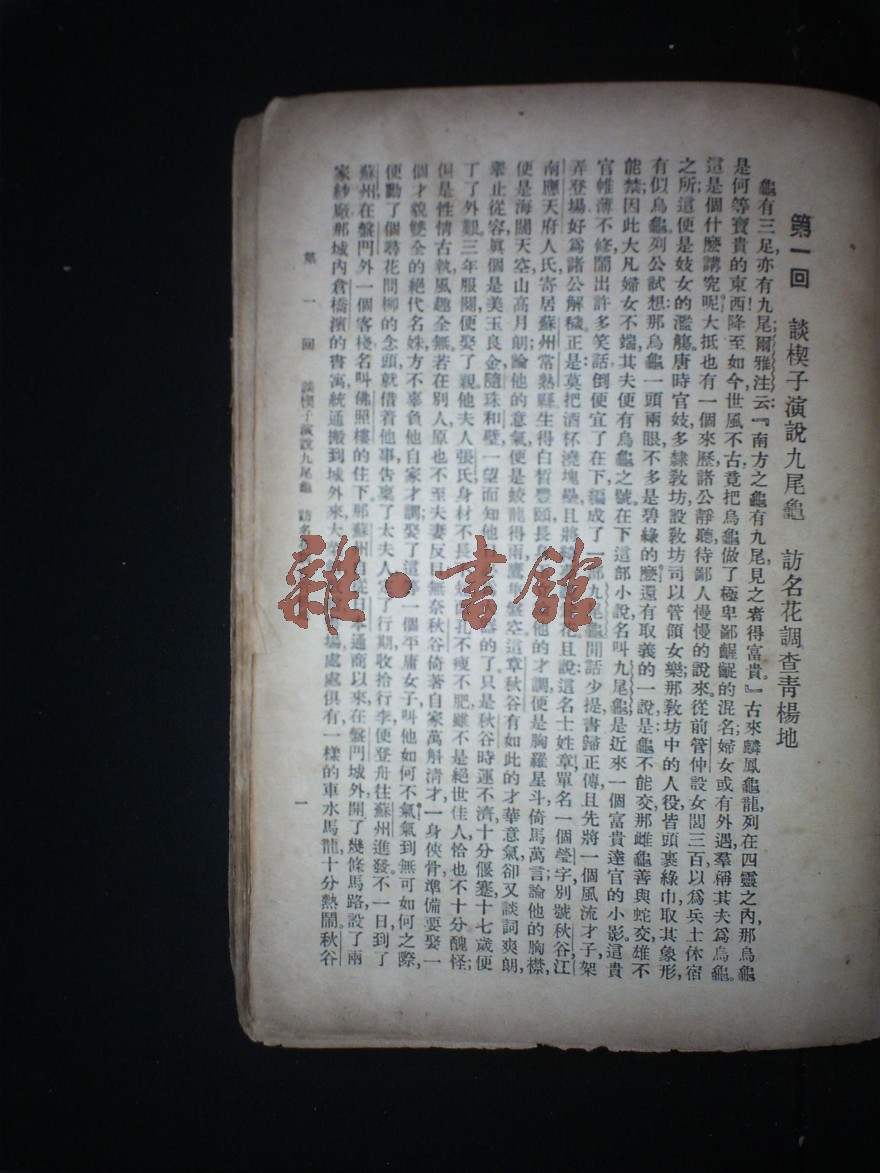 第一回　談楔子演說九尾龜　訪名花調查青楊地
龜有三足，亦有九尾；爾雅注云：『南方之龜有九尾，見之者得富貴。』古來麟鳳龜龍，列在四靈之內，那烏龜
是何等寶貴的東西！降至如今，世風不古，竟把烏龜做了極卑鄙齷齪的混名；婦女或有外遇，羣稱其夫爲烏龜。
這是個什麽講究呢？大抵也有一個來歷，諸公靜聽，待鄙人慢慢的說來。從前管仲設女閭三百，以爲兵士休宿
之所；這便是妓女的濫觴。唐時官妓，多隸敎坊，設敎坊司以管領女樂；那敎坊中的人役，皆頭裹綠巾，取其象形，
有似烏龜。列公試想：那烏龜一頭兩眼，不多是碧綠的麽？還有取義的一說，是龜不能交，那雌龜善與蛇交，雄不
能禁；因此大凡婦女不端，其夫便有烏龜之號。在下這部小說，名叫九尾龜，是近來一個富貴達官的小影。這貴
官帷薄不修，鬧出許多笑話，倒便宜了在下，編成了一部九尾龜。閒話少提，書歸正傳，且先將一個風流才子，架
弄登場，好爲諸公解穢。正是：莫把酒杯澆塊壘，且將花且說：這名士姓章，單名一個瑩字，別號秋谷，江
南應天府人氏，寄居蘇州常熟縣；生得白皙豐頤，長他的才調，便是胸羅星斗，倚馬萬言；論他的胸襟，
便是海闊天空，山高月朗；論他的意氣，便是蛟龍得雨，鷹隼空；這章秋谷有如此的才華意氣，卻又談詞爽朗，
舉止從容，眞個是美玉良金，隨珠和璧，一望而知他器的了。只是秋谷時運不濟，十分偃蹇，十七歲便
丁了外艱，三年服闋，便娶了親。他夫人張氏，身材不長面孔不瘦不肥，雖不是絕世佳人，恰也不十分醜怪；
但是性情古執，風趣全無。若在別人，原也不至夫妻反目；無奈秋谷倚著自家萬斛清才，一身俠骨，準備要娶一
個才貌雙全的絕代名姝，方不辜負他自家才調；娶了這等一個平庸女子，叫他如何不氣？氣到無可如何之際，
便動了個尋花問柳的念頭，就借着他事，告稟了太夫人，定了行期，收拾行李，便登舟往蘇州進發。不一日，到了
蘇州，在盤門外一個客棧，名叫佛照樓的住下。那蘇州自從日本通商以來，在盤門城外開了幾條馬路，設了兩
家紗廠，那城內倉橋濱的書寓，統通搬到城外來，大場，處處俱有，一樣的車水馬龍，十分熱鬧。秋谷
第一回　談楔子演說九尾龜　訪名
一
雜·書館